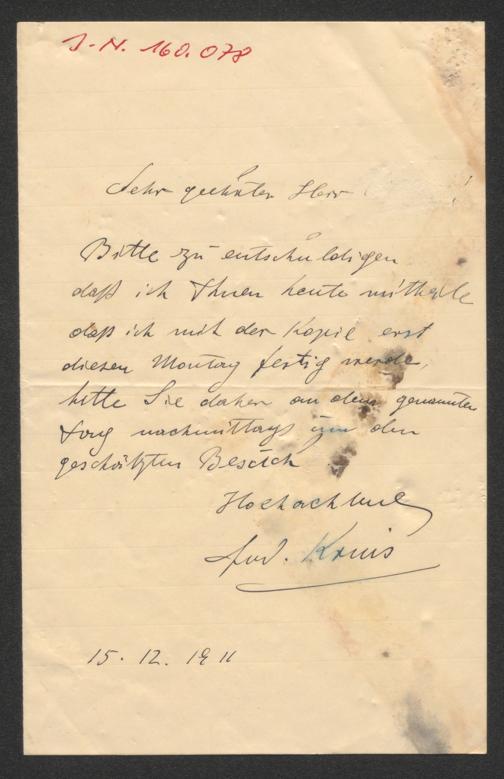 J.-N. 160.078
Sehr geehrter Herr !
Bitte zu entschuldigen
daß ich Ihnen heute mittheile
daß ich mit der Kopie erst
diesen Montag fertig werde,
bitte Sie daher an dem genannten
Tag nachmittags um den
geschätzten Besuch
Hochachtend
15. 12. 1911